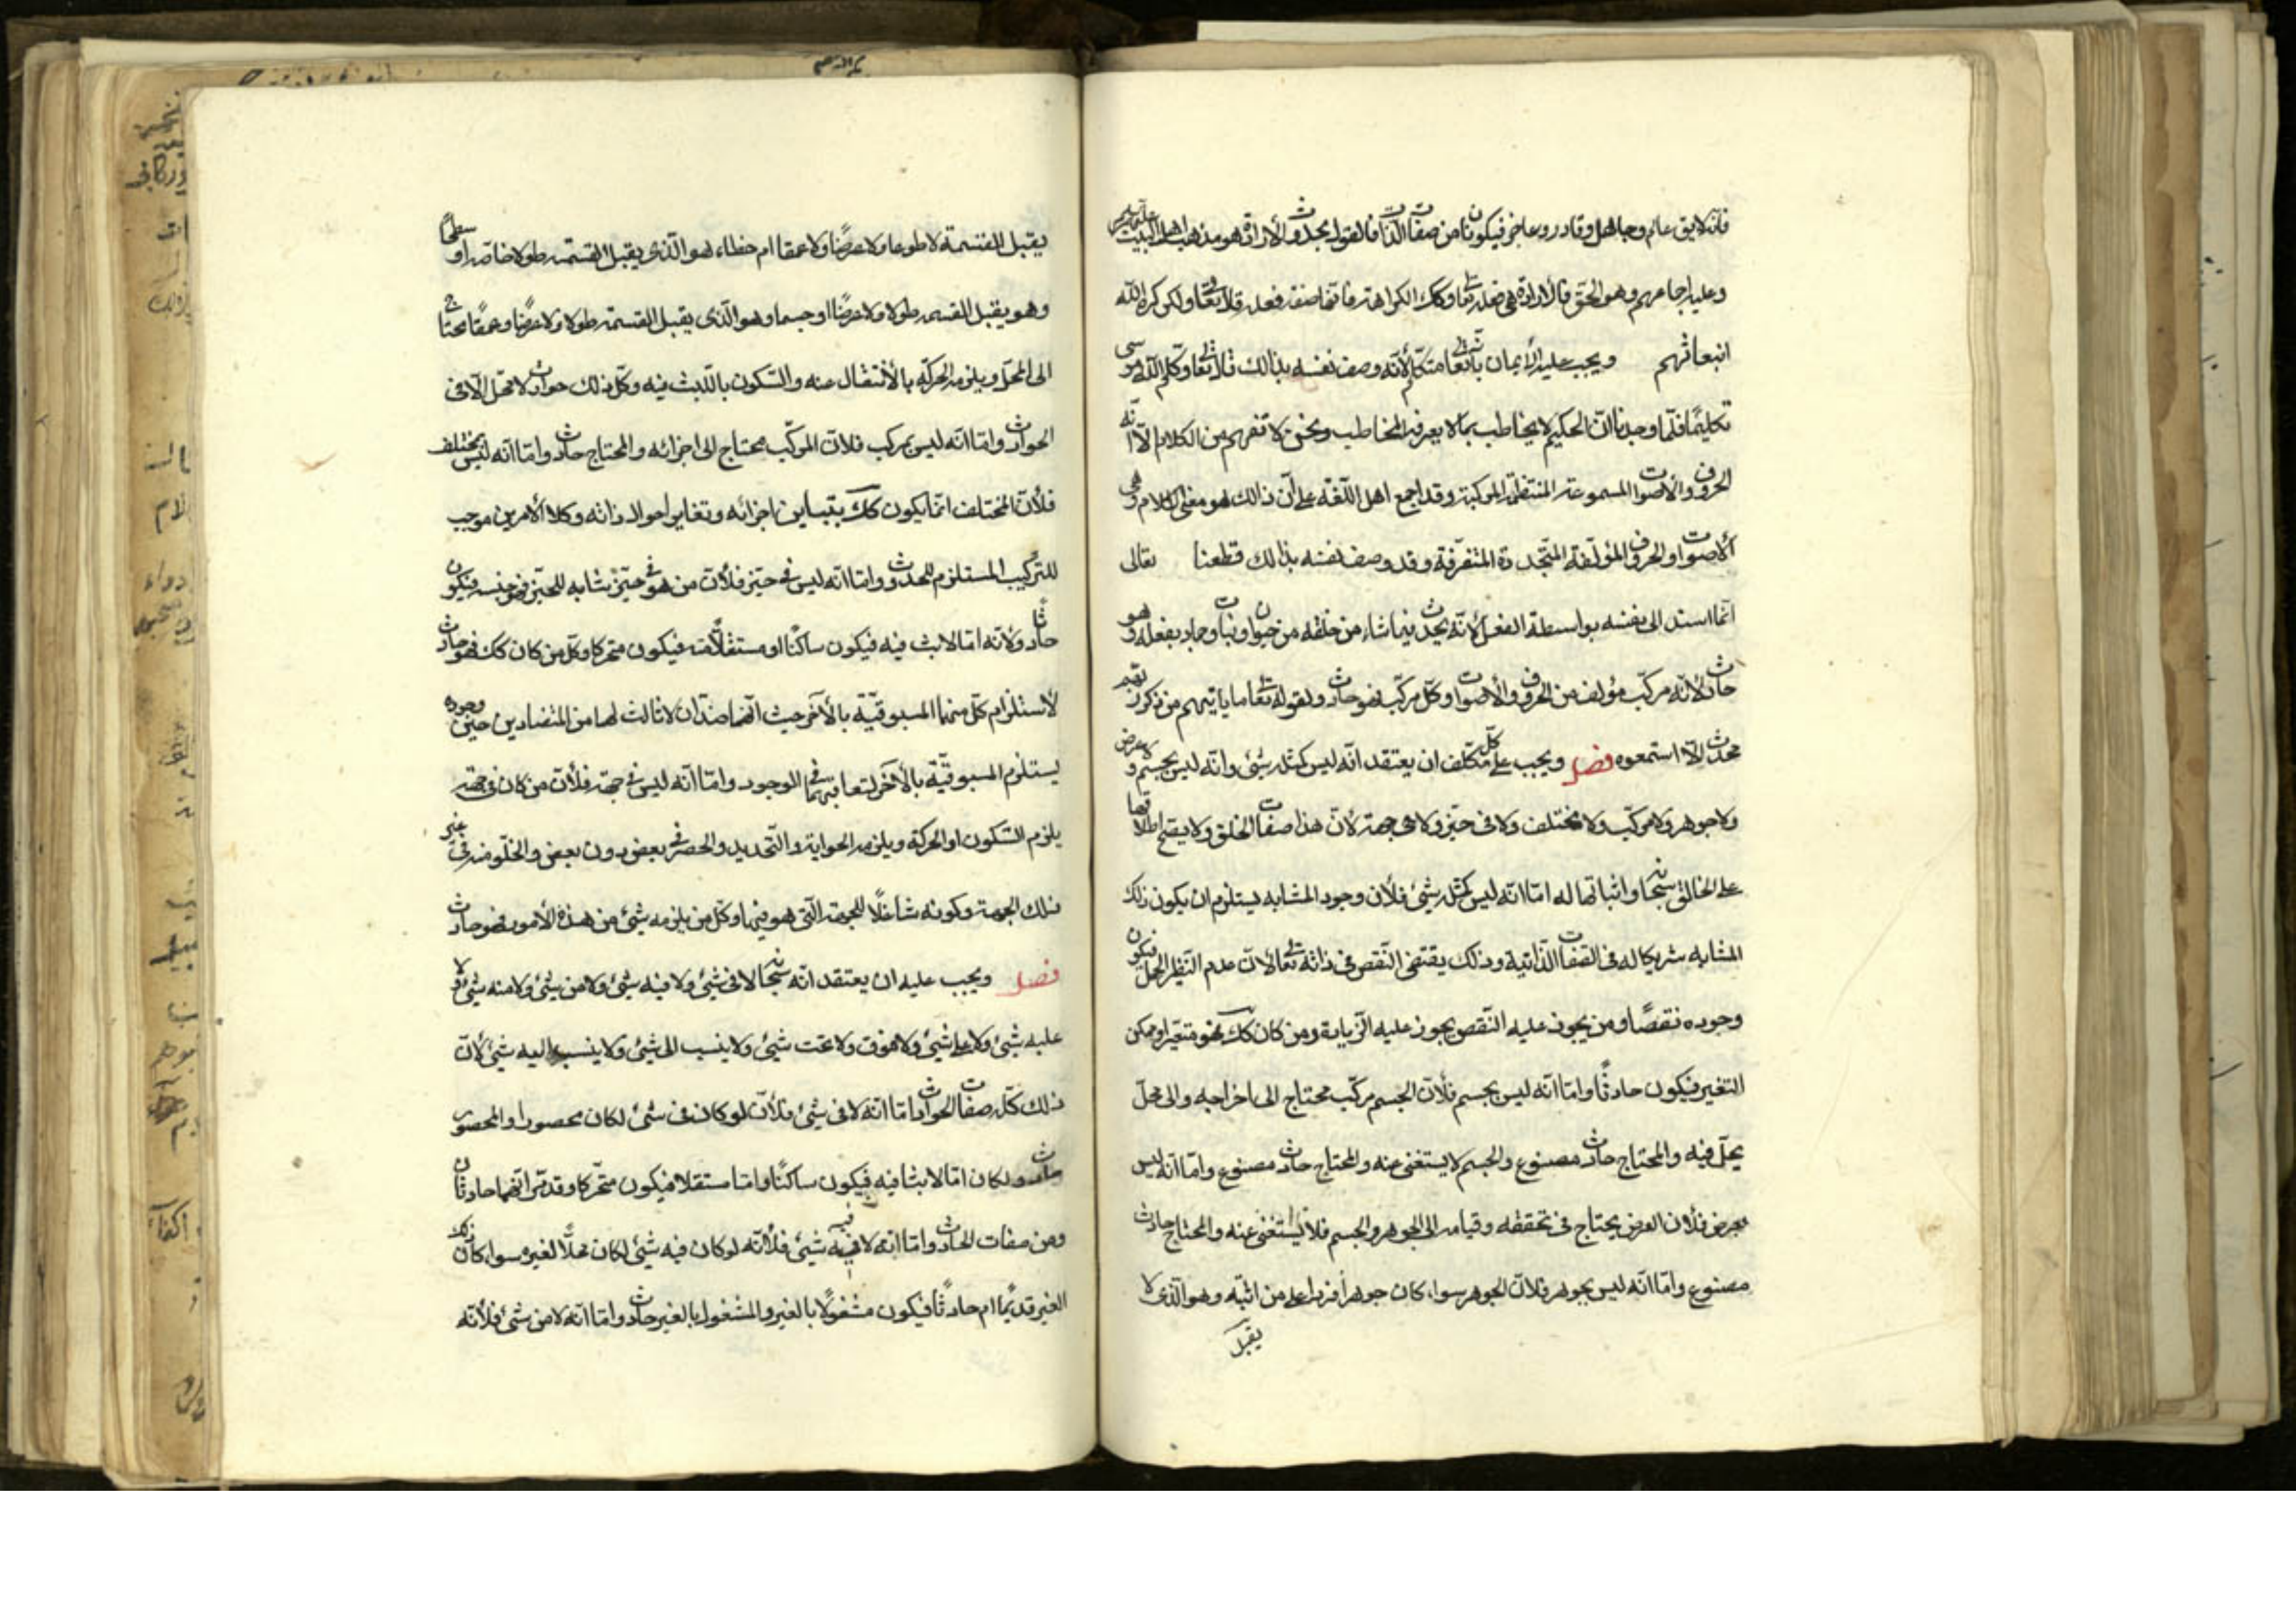 فانه لايق عالم وجاهل وقادر وعاجز فيكونا من صفات الذات فالقول بحدوث الأرادة هو مذهب اهل البيت عليهم السلم
وعليه اجماعهم وهو الحق فالأرادة هي فعله تعالى وكك الكراهة فانها صفة فعله قال تعالى ولكن كره الله
انبعاثهم ويجب عليه الأيمان بانه تعالى متكلم لأنه وصف نفسه بذالك قال تعالى وكلم الله موسى
تكليمًا فلما وجدنا ان الحكيم لا يخاطب بما لا يعرفه المخاطب ونحن لا نفهم من الكلام الّا انه
الحروف والأصوات المسموعة المنتظمة المركبة وقد اجمع اهل اللّغة على ان ذالك هو معنى الكلام وهى
الأصوات والحروف المؤلّفة المتجددة المتفرقة وقد وصف نفسه بذالك قطعنا تعالى
انما اسند الى نفسه بواسطة الفعل لأنه يحدث فيما شاء من خلقه من حيوان ونبات وجماد بفعله وهو
حادث لأنه مركب مؤلف من الحروف والأصوات وكل مركّب فهو حادث ولقوله تعالى ما ياتيهم من ذكر من ربهم
محدث الّا استمعوه فصل ويجب على كل مكلّف ان يعتقد انه ليس كمثله شئ وانه ليس بجسم ولا عرض
ولا جوهر ولا مركّب ولا مختلف ولا فى حيّز ولا فى جهة لأنّ هذا صفات الخلق ولا يصح اطلاقها
على الخالق سبحانه واثباتها له امّا انّه ليس كمثله شئ فلأن وجود المشابه يستلزم ان يكون ذلك
المشابه شريكا له فى الصّفات الذّاتية وذلك يقتضى النّقص فى ذاته تعالى لأنّ عدم النّظير اكمل فيكون
وجوده نقصًا ومن يجوز عليه النّقص يجوز عليه الزيادة ومن كان كك فهو متغيّر او ممكن
التغير فيكون حادثًا وامّا انّه ليس بجسم فلأنّ الجسم مركّب محتاج الى اجزائه والى محلّ
يحلّ فيه والمحتاج حادث مصنوع والجسم لا يستغنى عنه والمحتاج حادث مصنوع وامّا انّه ليس
بعرض فلأن العرض يحتاج فى تحققه وقيامه الى الجوهر والجسم فلا يستغنى عنه والمحتاج حادث
مصنوع وامّا انّه ليس بجوهر فلأنّ الجوهر سواء كان جوهر افردا على من اثبته وهو الّذى لا
يقبل
يقبل القسمة لا طولا ولا عرضًا ولا عمقا ام خطاء هو الّذى يقبل القسمة طولا خاصة او سطحًا
وهو يقبل القسمة طولا ولا عرضًا او جسما وهو الّذى يقبل القسمة طولا ولا عرضًا وعمقًا محتاج
الى المحلّ ويلزمه الحركة بالأنتقال عنه والسّكون باللّبث فيه وكلّ ذلك حوادث لا تحل الّا فى
الحوادث وامّا انّه ليس بمركب فلانّ المركّب محتاج الى اجزائه والمحتاج حادث وامّا انّه ليس بمختلف
فلأنّ المختلف انّما يكون كك بتباين اجزائه وتغاير احوال ذاته وكلا الأمرين موجب
للتركيب المستلزم للحدوث وامّا انّه ليس فى حيّز فلأنّ من هو فى حيّز يشابه للحيّز فى جنسه فيكون
حادثًا ولأنّه امّا لابث فيه فيكون ساكنًا او مستقلًا عنه فيكون متحركا وكلّ من كان كك فهو حادث
لأستلزام كلّ منهما المسبوقيّة بالأخر حيث انّهما ضدّان لا ثالث لهما من المتضادين حين وجوده
يستلزم المسبوقيّة بالأخر لتعاقبهما فى الوجود وامّا انّه ليس فى جهة فلأنّ من كان فى جهة
يلزم السّكون او الحركة ويلزمه الحواية والتّحديد والحصر فى بعض دون بعض والخلّو منه فى غير
ذلك الجهة وكونه شاغلًا للجهة الّتى هو فيها وكلّ من يلزمه شئ من هذه الأمور فهو حادث
فصل ويجب عليه ان يعتقد انّه سبحانه لا فى شئ ولا فيه شئ ولا من شئ ولا منه شئ ولا
عليه شئ ولا على شئ ولا فوق ولا تحت شئ ولا ينسب الى شئ ولا ينسب اليه شئ لأنّ
ذلك كلّه صفات الحوادث امّا انّه لا فى شئ فلأنّ لو كان فى شئ لكان محصورا والمحصور
حادث ولكان امّا لابثا فيه فيكون ساكنًا وامّا مستقلا فيكون متحرّكا وقد مرّ انّهما حادثان
ومن صفات الحادث وامّا انّه لا فيه شئ فلأنّه لو كان فيه شئ لكان محلًّا لغيره سواء كان ذلك
الغير قديمًا ام حادثًا فيكون مشغولًا بالغير والمشغول بالغير حادث وامّا انّه لا من شئ فلأنّه